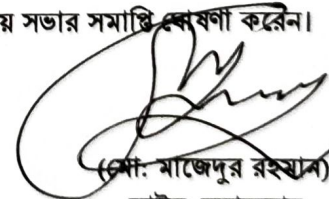 য় সভার সমাপ্তি ঘোষণা করেন।
(মো: মাজেদুর রহমান)